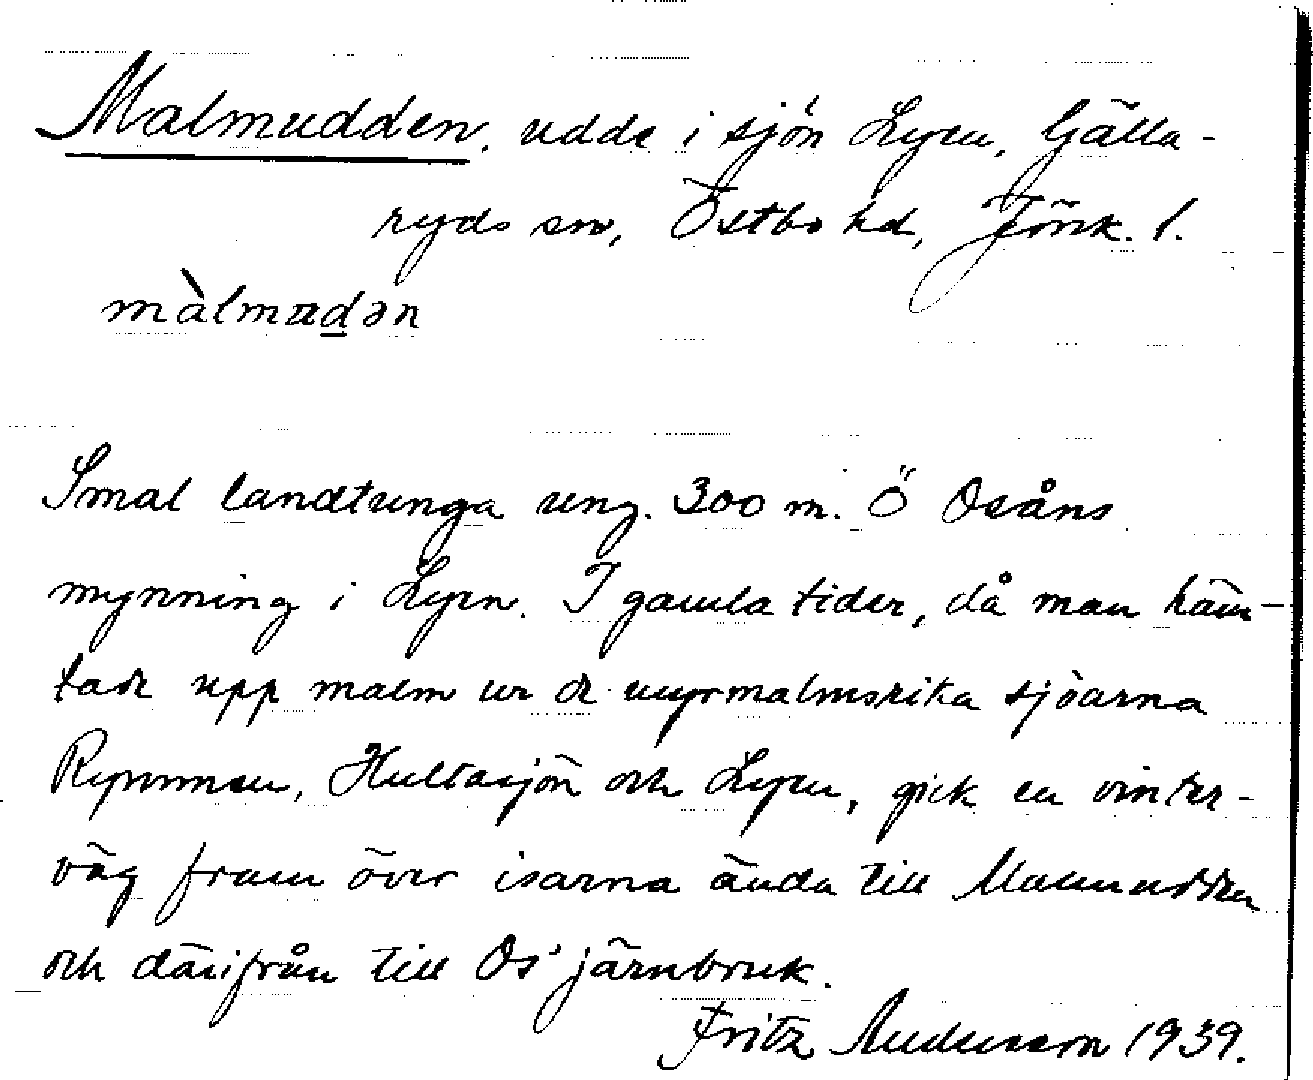 Malmudden, udde i sjön Lyen, Gälla-
ryds sn, Östbo hd, Jönk. l.
màlmudən
Smal landtunga ung. 300 m. Ö Osåns
mynning i Lyen. I gamla tider, då man häm-
tade upp malm ur de myrmalmsrika sjöarna
Rymmen, Hultasjön och Lyen, gick en vinter-
väg fram över isarna ända till Malmudden
och därifrån till Os' järnbruk.
Fritz Andersson 1939.